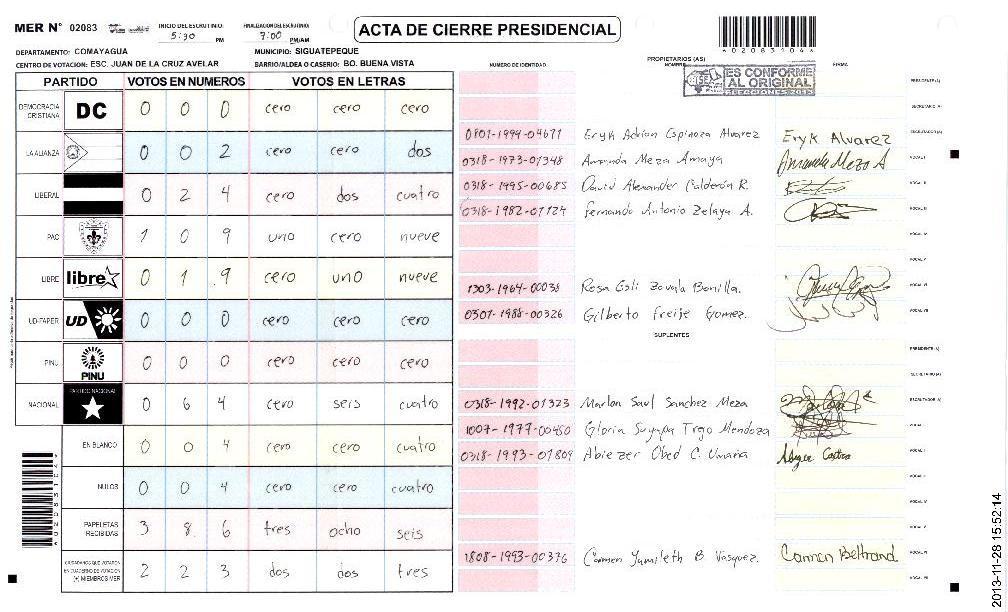 MER N° 02083
INICIO DEL ESCRUTINIO: 5:30 PM
FINALIZACION DEL ESCRUTINIO: 7:00 PM/AM
ACTA DE CIERRE PRESIDENCIAL
DEPARTAMENTO: COMAYAGUA
MUNICIPIO: SIGUATEPEQUE
CENTRO DE VOTACION: ESC. JUAN DE LA CRUZ AVELAR
BARRIO/ALDEA O CASERIO: BO. BUENA VISTA
NUMERO DE IDENTIDAD
PROPIETARIOS (AS)
NOMBRE
FIRMA
ES CONFORME
AL ORIGINAL
ELECCIONES 2013
PARTIDO VOTOS EN NUMEROS VOTOS EN LETRAS
DEMOCRACIA CRISTIANA DC 0 0 0 cero cero cero
LA ALIANZA 0 0 2 cero cero dos
LIBERAL 0 2 4 cero dos cuatro
PAC 1 0 9 uno cero nueve
LIBRE libre 0 1 9 cero uno nueve
UD-FAPER UD 0 0 0 cero cero cero
PINU PINU 0 0 0 cero cero cero
NACIONAL PARTIDO NACIONAL 0 6 4 cero seis cuatro
EN BLANCO 0 0 4 cero cero cuatro
NULOS 0 0 4 cero cero cuatro
PAPELETAS RECIBIDAS 3 8 6 tres ocho seis
CIUDADANOS QUE VOTARON EN CUADERNO DE VOTACION (+) MIEMBROS MER 2 2 3 dos dos tres
PRESIDENTE (A)
SECRETARIO (A)
0801-1994-04671 Eryk Adrian Espinoza Alvarez Eryk Alvarez ESCRUTADOR (A)
0318-1973-01348 Amanda Meza Amaya Amanda Meza A VOCAL I
0318-1995-00685 David Alexander Calderón R. VOCAL II
0318-1982-01124 Fernando Antonio Zelaya A. VOCAL III
VOCAL IV
VOCAL V
1303-1964-00038 Rosa Bonilla. VOCAL VI
0307-1988-00326 Gilberto Freije Gomez. VOCAL VII
SUPLENTES
PRESIDENTE (A)
SECRETARIO (A)
0318-1992-01323 Marlon Saul Sanchez Meza ESCRUTADOR (A)
1007-1977-00480 Gloria Suyapa Mendoza
0318-1993-01809 Abiezer Obed C. Umaña VOCAL I
VOCAL III
VOCAL IV
VOCAL V
1808-1993-00376 Carmen Yamileth B. Vasquez. Carmen Beltrand VOCAL VI
VOCAL VII
2013-11-28 15:52:14